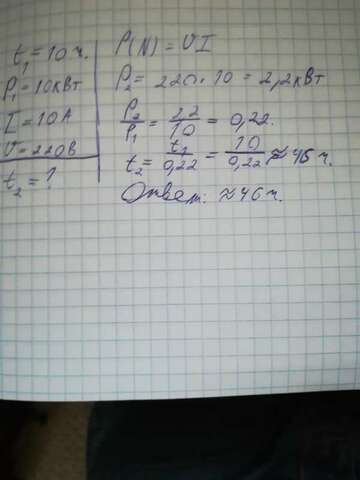 t₁ = 10 ч.
P₁ = 10 кВт
I = 10 А
U = 220 В
t₂ = ?
P(N) = UI
P₂ = 220 · 10 = 2,2 кВт
P₂/P₁ = 2,2/10 = 0,22.
t₂ = t₁/0,22 = 10/0,22 ≈ 46 ч.
Ответ: ≈ 46 ч.